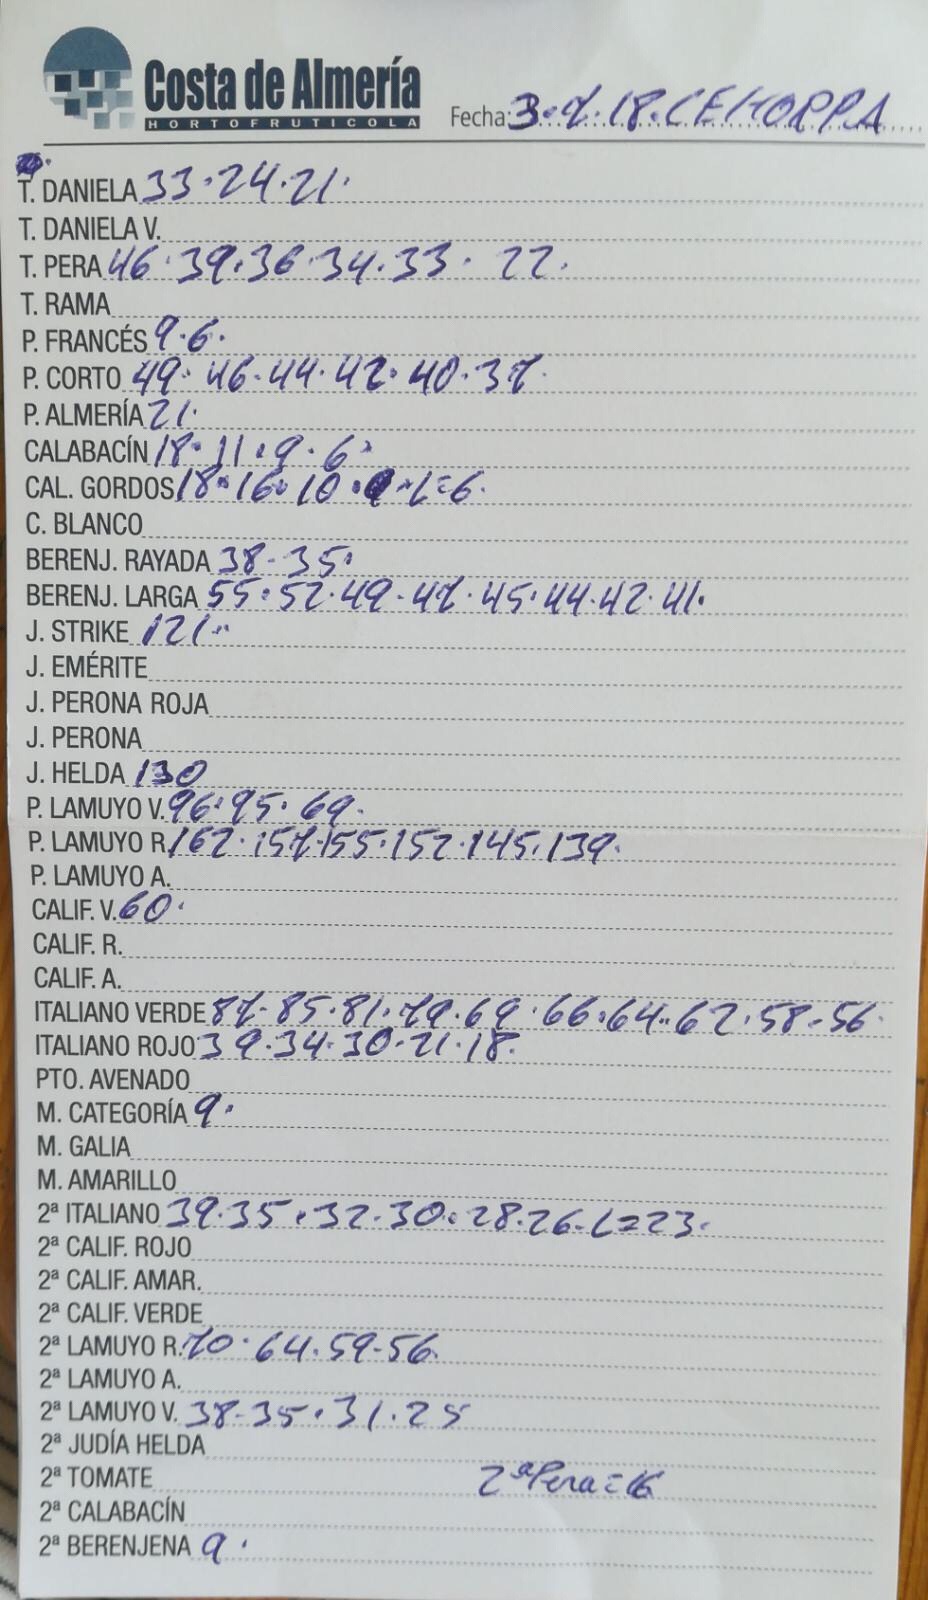 Costa de Almería
HORTOFRUTICOLA
Fecha: 3.7.18. CEHORPA
T. DANIELA 33.24.21.
T. DANIELA V.
T. PERA 46.39.36.34.33. 22.
T. RAMA
P. FRANCÉS 9.6.
P. CORTO 49. 46.44.42.40.37.
P. ALMERÍA 21.
CALABACÍN 18.11.9.6.
CAL. GORDOS 18.16.10. L=6.
C. BLANCO
BERENJ. RAYADA 38-35.
BERENJ. LARGA 55.52.49.47.45.44.42.41.
J. STRIKE 121.
J. EMÉRITE
J. PERONA ROJA
J. PERONA
J. HELDA 130
P. LAMUYO V. 96.95.69.
P. LAMUYO R. 162.157.155.152.145.139.
P. LAMUYO A.
CALIF. V. 60.
CALIF. R.
CALIF. A.
ITALIANO VERDE 87.85.81.79.69.66.64.62.58.56.
ITALIANO ROJO 39.34.30.21.18.
PTO. AVENADO
M. CATEGORÍA 9.
M. GALIA
M. AMARILLO
2ª ITALIANO 39.35.32.30.28.26.L=23.
2ª CALIF. ROJO
2ª CALIF. AMAR.
2ª CALIF. VERDE
2ª LAMUYO R. 70.64.59-56.
2ª LAMUYO A.
2ª LAMUYO V. 38-35.31.25
2ª JUDÍA HELDA
2ª TOMATE 2ª Pera=16
2ª CALABACÍN
2ª BERENJENA 9.